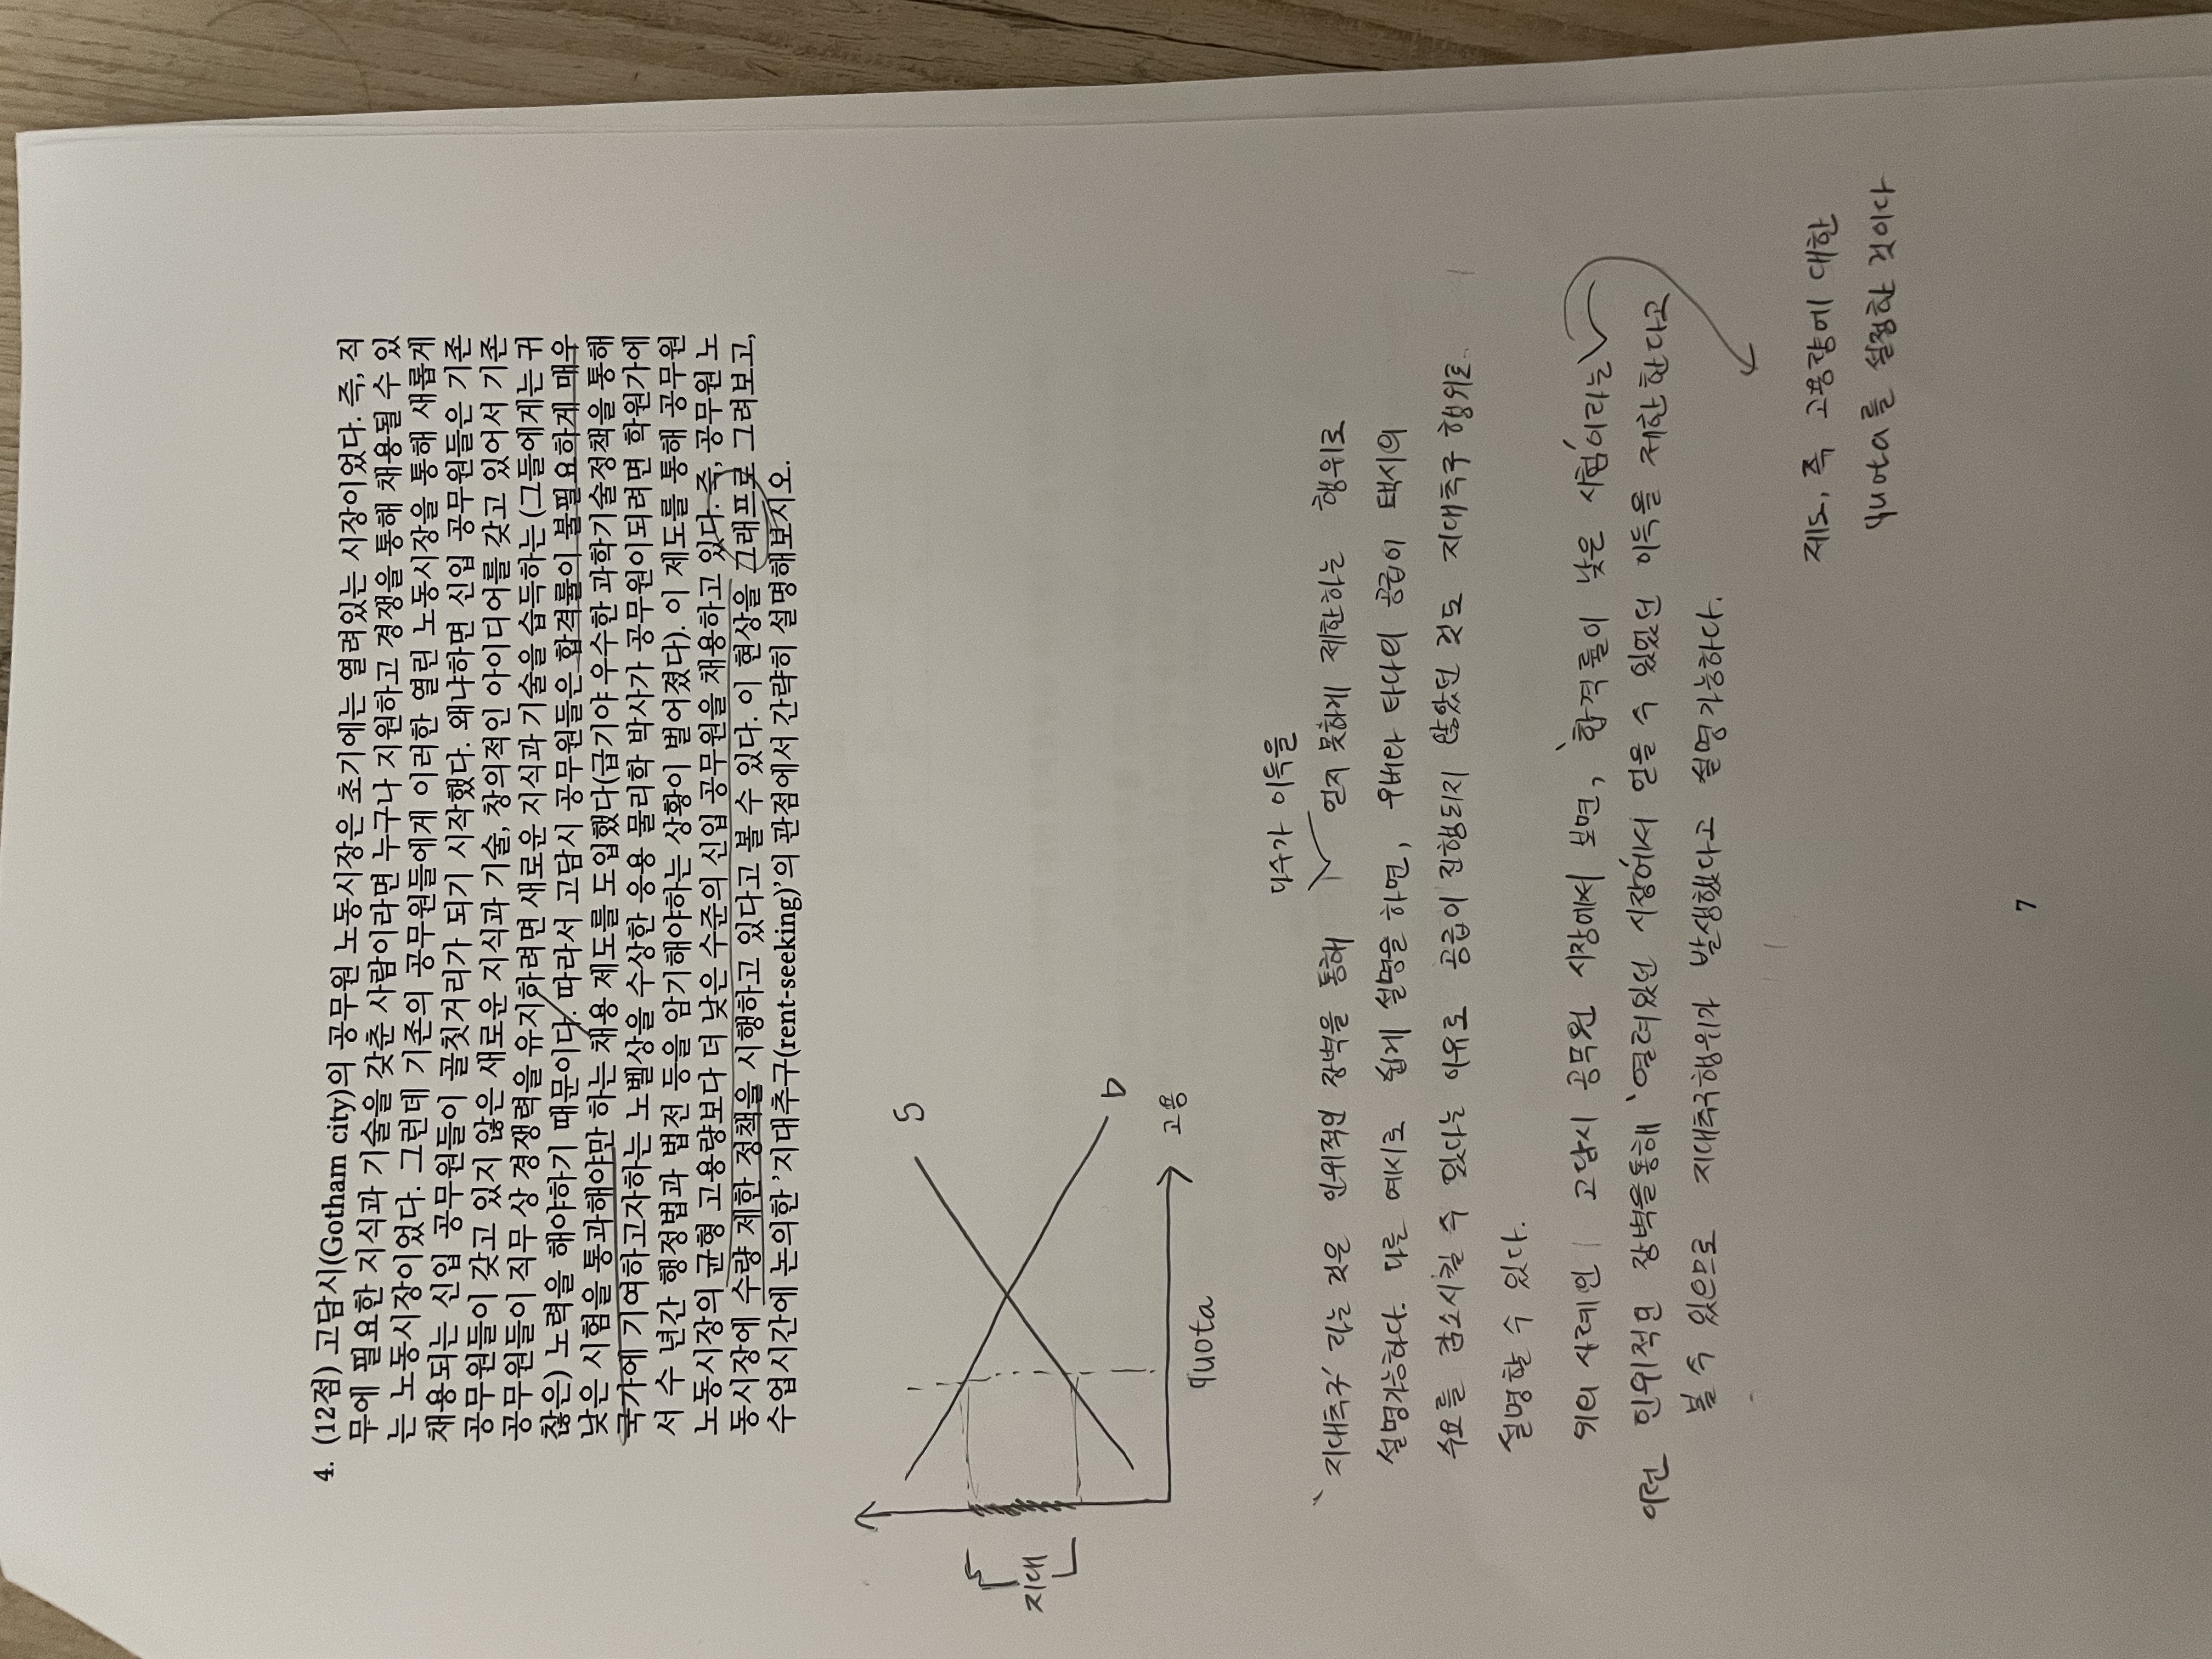 4. (12점) 고담시(Gotham city)의 공무원 노동시장은 초기에는 열려있는 시장이었다. 즉, 직
무에 필요한 지식과 기술을 갖춘 사람이라면 누구나 지원하고 경쟁을 통해 채용될 수 있
는 노동시장이었다. 그런데 기존의 공무원들에게 이러한 열린 노동시장을 통해 새롭게
채용되는 신입 공무원들이 골칫거리가 되기 시작했다. 왜냐하면 신입 공무원들은 기존
공무원들이 갖고 있지 않은 새로운 지식과 기술, 창의적인 아이디어를 갖고 있어서 기존
공무원들이 직무 상 경쟁력을 유지하려면 새로운 지식과 기술을 습득하는 (그들에게는 귀
찮은) 노력을 해야하기 때문이다. 따라서 고담시 공무원들은 합격률이 불필요하게 매우
낮은 시험을 통과해야만 하는 채용 제도를 도입했다(급기야 우수한 과학기술정책을 통해
국가에 기여하고자하는 노벨상을 수상한 응용 물리학 박사가 공무원이되려면 학원가에
서 수 년간 행정법과 법전 등을 암기해야하는 상황이 벌어졌다). 이 제도를 통해 공무원
노동시장의 균형 고용량보다 더 낮은 수준의 신입 공무원을 채용하고 있다. 즉, 공무원 노
동시장에 수량 제한 정책을 시행하고 있다고 볼 수 있다. 이 현상을 그래프로 그려보고,
수업시간에 논의한 '지대추구(rent-seeking)'의 관점에서 간략히 설명해보시오.
S
지대
D
고용
quota
다수가 이득을
'지대추구' 라는 것은 인위적인 장벽을 통해 얻지 못하게 제한하는 행위로
설명가능하다. 다른 예시로 쉽게 설명을 하면, 우버나 타다의 공급이 택시의
수요를 감소시킬 수 있다는 이유로 공급이 진행되지 않았던 것도 지대추구 행위로
설명할 수 있다.
위의 사례인 고담시 공무원 시장에서 보면, '합격률이 낮은 시험'이라는
이런 인위적인 장벽을통해 '열려있던 시장'에서 얻을 수 있었던 이득을 제한한다고
볼 수 있으므로 지대추구행위가 발생했다고 설명가능하다.
제도, 즉 고용량에 대한
quota를 설정한 것이다
7